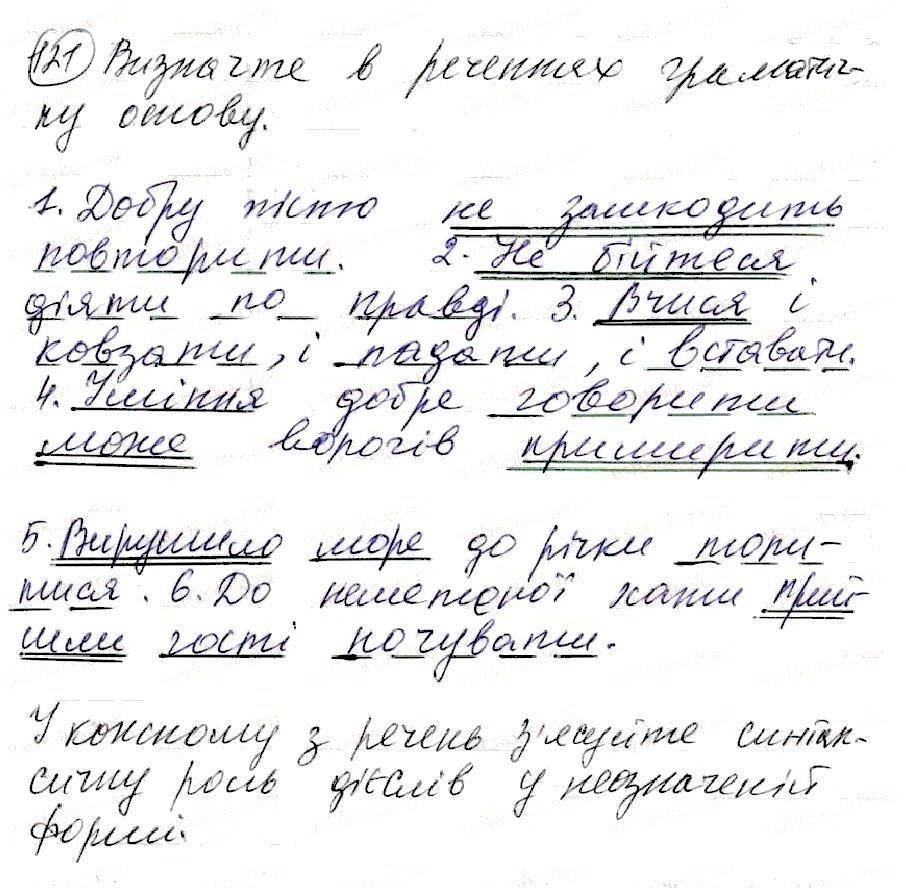 121 Визначте в реченнях граматич-
ну основу.
1. Добру пісню не зашкодить
повторити. 2. Не бійтеся
діяти по правді. 3. Вчися і
ковзати, і падати, і вставати.
4. Уміння добре говорити
може ворогів примирити.
5. Вирушило море до річки топи-
тися. 6. До неметеної хати прий-
шли гості ночувати.
У кожному з речень з'ясуйте синтак-
сичну роль дієслів у неозначеній
формі.